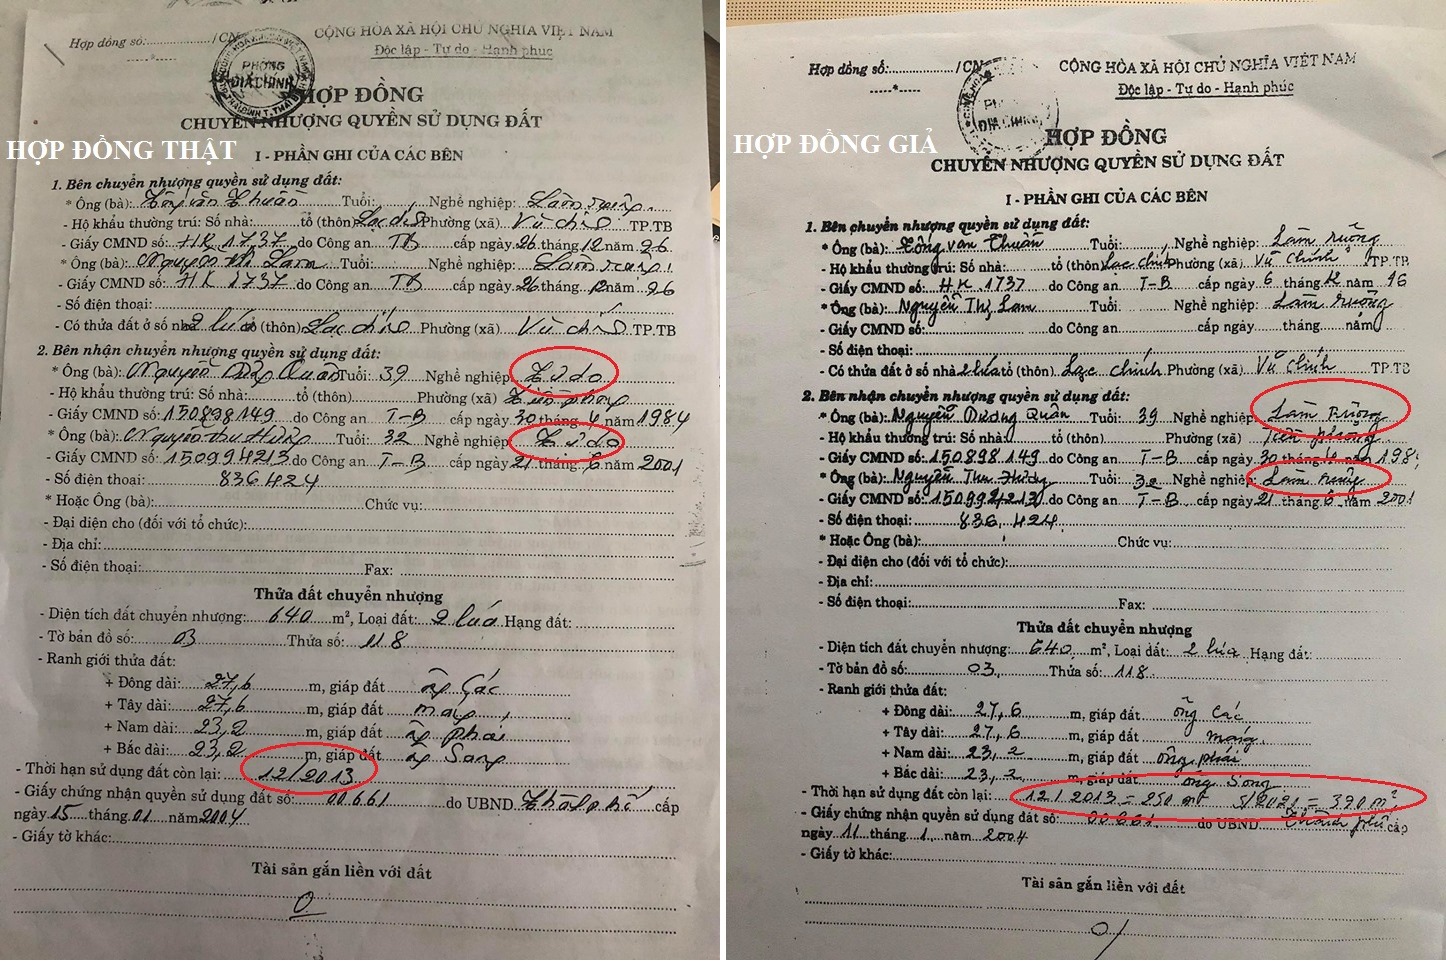 Hợp đồng số:............../CN
CỘNG HÒA XÃ HỘI CHỦ NGHĨA VIỆT NAM
Độc lập - Tự do - Hạnh phúc
-----*-----
PHÒNG
ĐỊA CHÍNH
HỢP ĐỒNG
CHUYỂN NHƯỢNG QUYỀN SỬ DỤNG ĐẤT
HỢP ĐỒNG THẬT
I - PHẦN GHI CỦA CÁC BÊN
1. Bên chuyển nhượng quyền sử dụng đất:
* Ông (bà): Tuổi: Nghề nghiệp:
- Hộ khẩu thường trú: Số nhà: tổ (thôn) Phường (xã) TP.TB
- Giấy CMND số: HK 1737 do Công an TB cấp ngày 26 tháng 12 năm 96
* Ông (bà): Tuổi: Nghề nghiệp:
- Giấy CMND số: HK 1737 do Công an TB cấp ngày 26 tháng 12 năm 96
- Số điện thoại:
- Có thửa đất ở số nhà 2 lúa tổ (thôn) Phường (xã) TP.TB
2. Bên nhận chuyển nhượng quyền sử dụng đất:
* Ông (bà): Nguyễn Quân Tuổi: 39 Nghề nghiệp: Tự do
- Hộ khẩu thường trú: Số nhà: tổ (thôn) Phường (xã) Tiền phong
- Giấy CMND số: 150898149 do Công an T-B cấp ngày 30 tháng 4 năm 1984
* Ông (bà): Nguyễn Thu Tuổi: 32 Nghề nghiệp: Tự do
- Giấy CMND số: 150994213 do Công an T-B cấp ngày 21 tháng 6 năm 2001
- Số điện thoại: 836424
* Hoặc Ông (bà): Chức vụ:
- Đại diện cho (đối với tổ chức):
- Địa chỉ:
- Số điện thoại: Fax:
Thửa đất chuyển nhượng
- Diện tích đất chuyển nhượng: 640 m², Loại đất: 2 lúa Hạng đất:
- Tờ bản đồ số: 03 Thửa số: 118
- Ranh giới thửa đất:
+ Đông dài: 27,6 m, giáp đất
+ Tây dài: 27,6 m, giáp đất
+ Nam dài: 23,2 m, giáp đất
+ Bắc dài: 23,2 m, giáp đất
- Thời hạn sử dụng đất còn lại: 12/2013
- Giấy chứng nhận quyền sử dụng đất số: 00661 do UBND Thành phố cấp
ngày 15 tháng 01 năm 2004
- Giấy tờ khác:
Tài sản gắn liền với đất
0
Hợp đồng số:............../CN
CỘNG HÒA XÃ HỘI CHỦ NGHĨA VIỆT NAM
Độc lập - Tự do - Hạnh phúc
-----*-----
ĐỊA CHÍNH
HỢP ĐỒNG
CHUYỂN NHƯỢNG QUYỀN SỬ DỤNG ĐẤT
HỢP ĐỒNG GIẢ
I - PHẦN GHI CỦA CÁC BÊN
1. Bên chuyển nhượng quyền sử dụng đất:
* Ông (bà): Tống văn Thuấn Tuổi: Nghề nghiệp: Làm ruộng
- Hộ khẩu thường trú: Số nhà: tổ (thôn) Lạc chính Phường (xã) Vũ Chính TP.TB
- Giấy CMND số: HK 1737 do Công an T-B cấp ngày 6 tháng 12 năm 96
* Ông (bà): Nguyễn Thị Lam Tuổi: Nghề nghiệp: Làm ruộng
- Giấy CMND số: do Công an cấp ngày tháng năm
- Số điện thoại:
- Có thửa đất ở số nhà 2 lúa tổ (thôn) Lạc chính Phường (xã) Vũ Chính TP.TB
2. Bên nhận chuyển nhượng quyền sử dụng đất:
* Ông (bà): Nguyễn Dương Quân Tuổi: 39 Nghề nghiệp: Làm ruộng
- Hộ khẩu thường trú: Số nhà tổ (thôn) Phường (xã) Tiền phong
- Giấy CMND số: 150898149 do Công an T-B cấp ngày 30 tháng 4 năm 198
* Ông (bà): Nguyễn Thu Hương Tuổi: 32 Nghề nghiệp: Làm ruộng
- Giấy CMND số: 150994213 do Công an T-B cấp ngày 21 tháng 6 năm 2001
- Số điện thoại: 836.424
* Hoặc Ông (bà): Chức vụ:
- Đại diện cho (đối với tổ chức):
- Địa chỉ:
- Số điện thoại: Fax:
Thửa đất chuyển nhượng
- Diện tích đất chuyển nhượng: 640 m², Loại đất: 2 lúa Hạng đất:
- Tờ bản đồ số: 03 Thửa số: 118
- Ranh giới thửa đất:
+ Đông dài: 27,6 m, giáp đất ông Các
+ Tây dài: 27,6 m, giáp đất máng
+ Nam dài: 23,2 m, giáp đất ông phái
+ Bắc dài: 23,2 m, giáp đất ông Song
- Thời hạn sử dụng đất còn lại: 12/2013 = 250 m² 5/2021 = 390 m²
- Giấy chứng nhận quyền sử dụng đất số: 00661 do UBND Thành phố cấp
ngày 11 tháng 1 năm 2004
- Giấy tờ khác:
Tài sản gắn liền với đất
0/